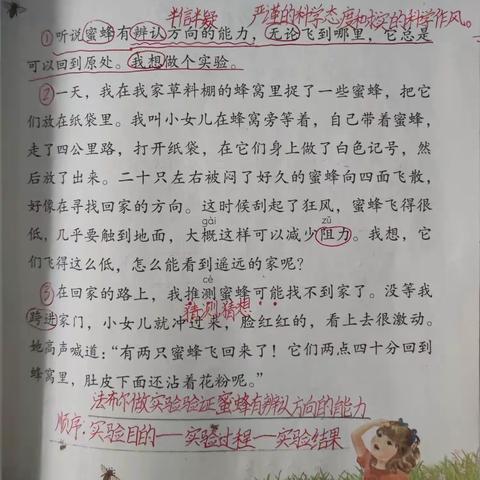 半信半疑 严谨的科学态度和求实的科学作风。
①听说蜜蜂有辨认方向的能力，无论飞到哪里，它总是
可以回到原处。我想做个实验。
②一天，我在我家草料棚的蜂窝里捉了一些蜜蜂，把它
们放在纸袋里。我叫小女儿在蜂窝旁等着，自己带着蜜蜂，
走了四公里路，打开纸袋，在它们身上做了白色记号，然
后放了出来。二十只左右被闷了好久的蜜蜂向四面飞散，
好像在寻找回家的方向。这时候刮起了狂风，蜜蜂飞得很
gài zǔ
低，几乎要触到地面，大概这样可以减少阻力。我想，它
们飞得这么低，怎么能看到遥远的家呢？
cè
③在回家的路上，我推测蜜蜂可能找不到家了。没等我
猜测猜想
跨进家门，小女儿就冲过来，脸红红的，看上去很激动。
她高声喊道：“有两只蜜蜂飞回来了！它们两点四十分回到
蜂窝里，肚皮下面还沾着花粉呢。”
法布尔做实验验证蜜蜂有辨认方向的能力
顺序：实验目的一实验过程一实验结果